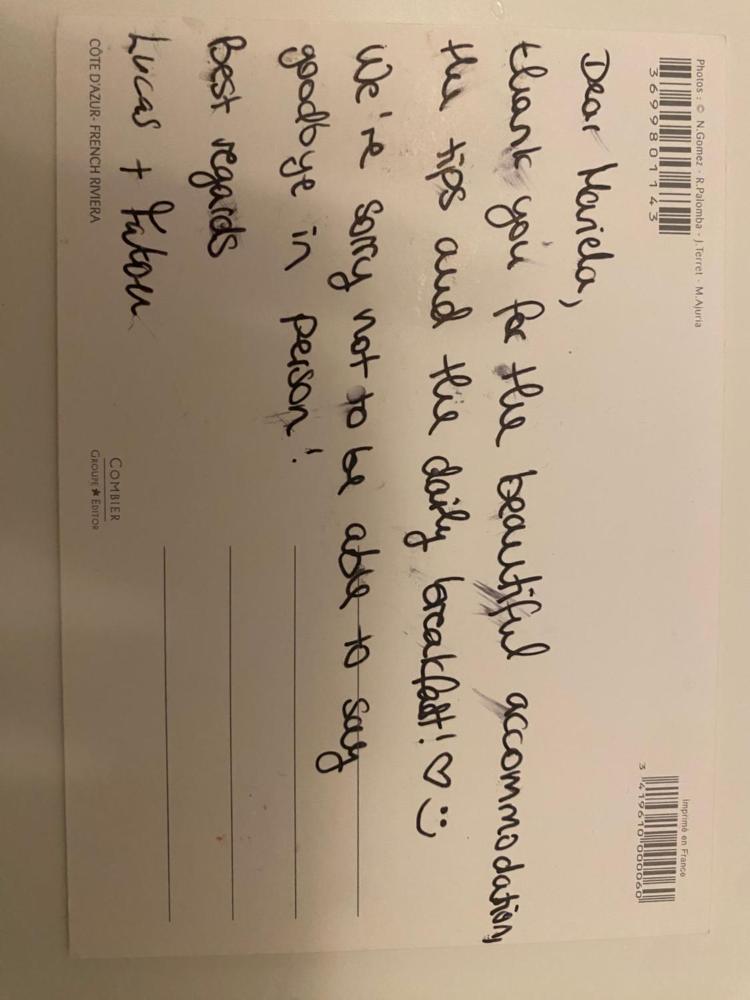 Photos : © N.Gomez - R.Palomba - J.Terret - M.Ajuria
3699801143
Imprimé en France
3 419610 000060
Dear Mariela,
thank you for the beautiful accommodation,
the tips and the daily breakfast! ♡ :)
We're sorry not to be able to say
goodbye in person!
Best regards
Lucas + Fatou
CÔTE D'AZUR- FRENCH RIVIERA
COMBIER
GROUPE ★ EDITOR